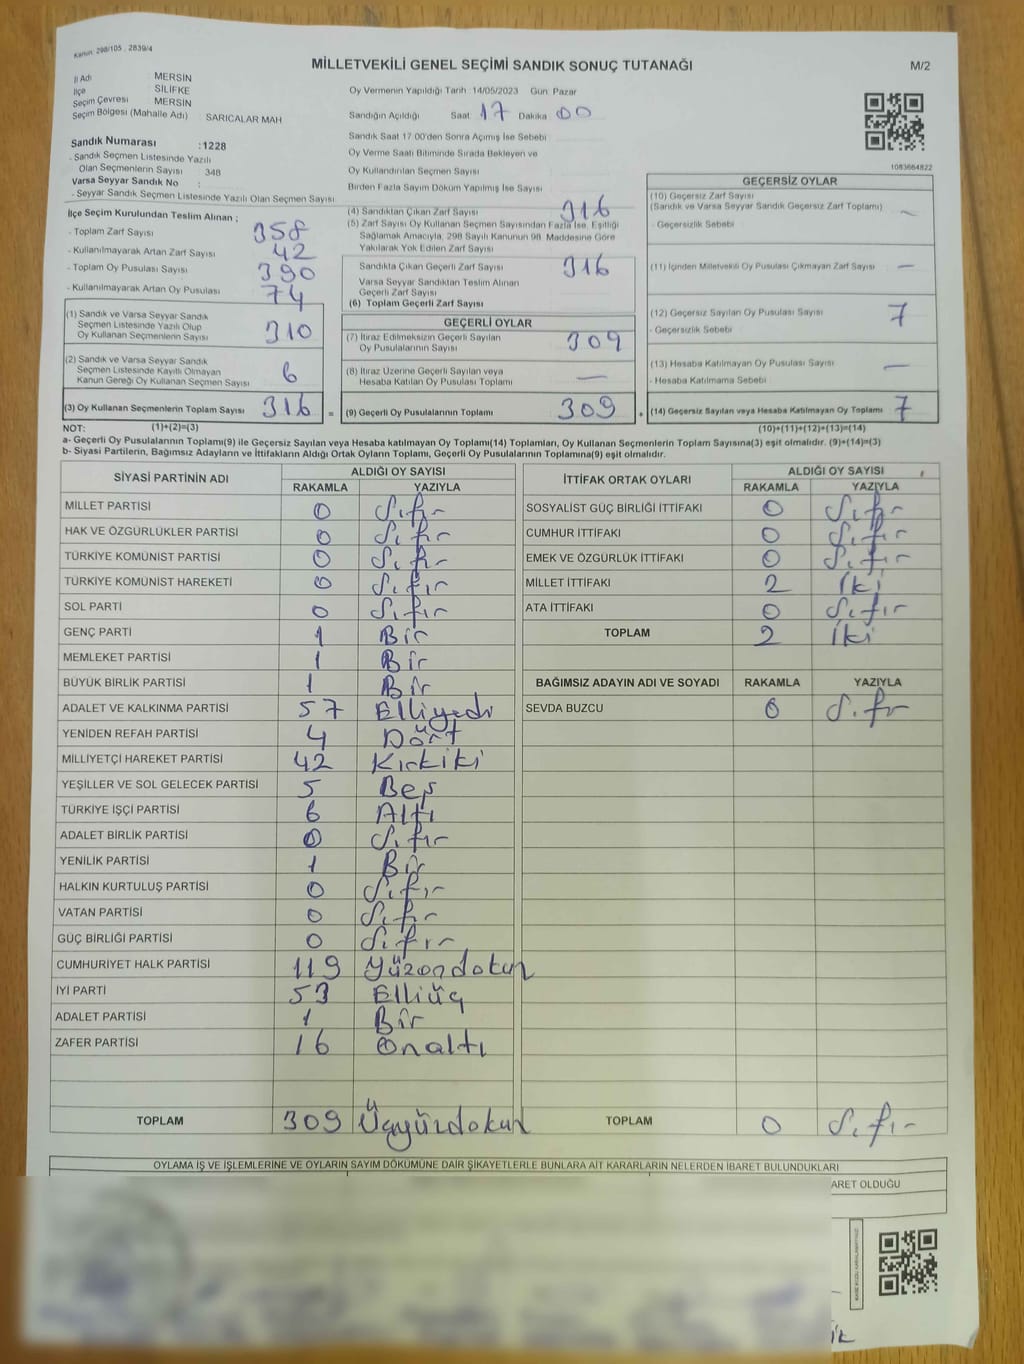 Kanun: 298/105 , 2839/4
MİLLETVEKİLİ GENEL SEÇİMİ SANDIK SONUÇ TUTANAĞI
M/2
İl Adı : MERSİN
İlçe : SİLİFKE
Seçim Çevresi : MERSİN
Seçim Bölgesi (Mahalle Adı) : SARICALAR MAH
Sandık Numarası :1228
- Sandık Seçmen Listesinde Yazılı
Olan Seçmenlerin Sayısı : 348
Varsa Seyyar Sandık No :
- Seyyar Sandık Seçmen Listesinde Yazılı Olan Seçmen Sayısı
İlçe Seçim Kurulundan Teslim Alınan ;
- Toplam Zarf Sayısı 358
- Kullanılmayarak Artan Zarf Sayısı 42
- Toplam Oy Pusulası Sayısı 390
- Kullanılmayarak Artan Oy Pusulası 74
(1) Sandık ve Varsa Seyyar Sandık
Seçmen Listesinde Yazılı Olup
Oy Kullanan Seçmenlerin Sayısı 310
(2) Sandık ve Varsa Seyyar Sandık
Seçmen Listesinde Kayıtlı Olmayan
Kanun Gereği Oy Kullanan Seçmen Sayısı 6
(3) Oy Kullanan Seçmenlerin Toplam Sayısı 316 =
Oy Vermenin Yapıldığı Tarih 14/05/2023 Gün: Pazar
Sandığın Açıldığı Saat 17 Dakika 00
Sandık Saat 17:00'den Sonra Açımış İse Sebebi
Oy Verme Saati Bitiminde Sırada Bekleyen ve
Oy Kullandırılan Seçmen Sayısı
Birden Fazla Sayım Döküm Yapılmış İse Sayısı
(4) Sandıktan Çıkan Zarf Sayısı 316
(5) Zarf Sayısı Oy Kullanan Seçmen Sayısından Fazla İse, Eşitliği
Sağlamak Amacıyla, 298 Sayılı Kanunun 98. Maddesine Göre
Yakılarak Yok Edilen Zarf Sayısı
Sandıkta Çıkan Geçerli Zarf Sayısı 316
Varsa Seyyar Sandıktan Teslim Alınan
Geçerli Zarf Sayısı
(6) Toplam Geçerli Zarf Sayısı
GEÇERLİ OYLAR
(7) İtiraz Edilmeksizin Geçerli Sayılan
Oy Pusulalarının Sayısı 309
(8) İtiraz Üzerine Geçerli Sayılan veya
Hesaba Katılan Oy Pusulası Toplamı —
(9) Geçerli Oy Pusulalarının Toplamı 309 +
1083664822
GEÇERSİZ OYLAR
(10) Geçersiz Zarf Sayısı
(Sandık ve Varsa Seyyar Sandık Geçersiz Zarf Toplamı) —
- Geçersizlik Sebebi
(11) İçinden Milletvekili Oy Pusulası Çıkmayan Zarf Sayısı —
(12) Geçersiz Sayılan Oy Pusulası Sayısı 7
- Geçersizlik Sebebi
(13) Hesaba Katılmayan Oy Pusulası Sayısı —
- Hesaba Katılmama Sebebi
(14) Geçersiz Sayılan veya Hesaba Katılmayan Oy Toplamı 7
NOT: (1)+(2)=(3) (10)+(11)+(12)+(13)=(14)
a- Geçerli Oy Pusulalarının Toplamı(9) ile Geçersiz Sayılan veya Hesaba katılmayan Oy Toplamı(14) Toplamları, Oy Kullanan Seçmenlerin Toplam Sayısına(3) eşit olmalıdır. (9)+(14)=(3)
b- Siyasi Partilerin, Bağımsız Adayların ve İttifakların Aldığı Ortak Oyların Toplamı, Geçerli Oy Pusulalarının Toplamına(9) eşit olmalıdır.
SİYASİ PARTİNİN ADI ALDIĞI OY SAYISI
RAKAMLA YAZIYLA
MİLLET PARTİSİ 0 Sıfır
HAK VE ÖZGÜRLÜKLER PARTİSİ 0 Sıfır
TÜRKİYE KOMÜNİST PARTİSİ 0 Sıfır
TÜRKİYE KOMÜNİST HAREKETİ 0 Sıfır
SOL PARTİ 0 Sıfır
GENÇ PARTİ 1 Bir
MEMLEKET PARTİSİ 1 Bir
BÜYÜK BİRLİK PARTİSİ 1 Bir
ADALET VE KALKINMA PARTİSİ 57 Elliyedi
YENİDEN REFAH PARTİSİ 4 Dört
MİLLİYETÇİ HAREKET PARTİSİ 42 Kırkiki
YEŞİLLER VE SOL GELECEK PARTİSİ 5 Beş
TÜRKİYE İŞÇİ PARTİSİ 6 Altı
ADALET BİRLİK PARTİSİ 0 Sıfır
YENİLİK PARTİSİ 1 Bir
HALKIN KURTULUŞ PARTİSİ 0 Sıfır
VATAN PARTİSİ 0 Sıfır
GÜÇ BİRLİĞİ PARTİSİ 0 Sıfır
CUMHURİYET HALK PARTİSİ 119 Yüzondokuz
İYİ PARTİ 53 Elliüç
ADALET PARTİSİ 1 Bir
ZAFER PARTİSİ 16 Onaltı
TOPLAM 309 Üçyüzdokuz
İTTİFAK ORTAK OYLARI ALDIĞI OY SAYISI
RAKAMLA YAZIYLA
SOSYALİST GÜÇ BİRLİĞİ İTTİFAKI 0 Sıfır
CUMHUR İTTİFAKI 0 Sıfır
EMEK VE ÖZGÜRLÜK İTTİFAKI 0 Sıfır
MİLLET İTTİFAKI 2 İki
ATA İTTİFAKI 0 Sıfır
TOPLAM 2 İki
BAĞIMSIZ ADAYIN ADI VE SOYADI RAKAMLA YAZIYLA
SEVDA BUZCU 0 Sıfır
TOPLAM 0 Sıfır
OYLAMA İŞ VE İŞLEMLERİNE VE OYLARIN SAYIM DÖKÜMÜNE DAİR ŞİKAYETLERLE BUNLARA AİT KARARLARIN NELERDEN İBARET BULUNDUKLARI
ARET OLDUĞU